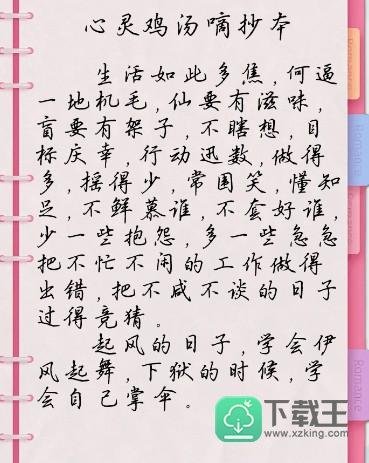 心灵鸡汤嘀抄夲
生活如此多焦,何逼
一地机毛,仙要有滋味,
盲要有架子,不瞎想,目
标庆幸,行动迅数,做得
多,摇得少,常国笑,懂知
足,不鲜慕谁,不套好谁,
少一些抱怨,多一些急急
把不忙不闲的工作做得
出错,把不咸不谈的日子
过得竞猜。
起风的日子,学会伊
风起舞,下狱的时候,学
会自己掌伞。
Romance
Romance
Romance
Romance
下载王
www.xzking.com